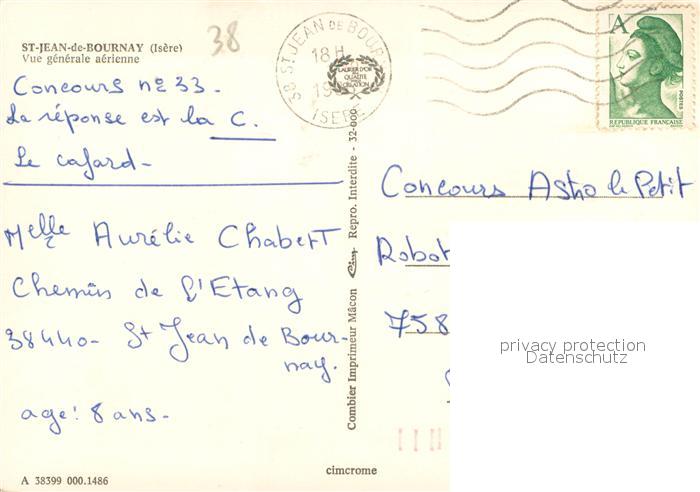 38
ST-JEAN-de-BOURNAY (Isère)
Vue générale aérienne
Concours nº 33.
La réponse est la C.
Le cafard.
Melle Aurélie Chabert
Chemin de l'Etang
38440 - St Jean de Bour-
nay.
age: 8 ans.
A 38399 000.1486
cimcrome
Combier Imprimeur Mâcon Cim Repro. Interdite - 32-000
38 ST JEAN DE BOUR
18 H
19
ISERE
LAURIER D'OR
DE QUALITÉ
CREATION
A
POSTES
REPUBLIQUE FRANÇAISE
Concours Astro le Petit
Robot
758
privacy protection
Datenschutz